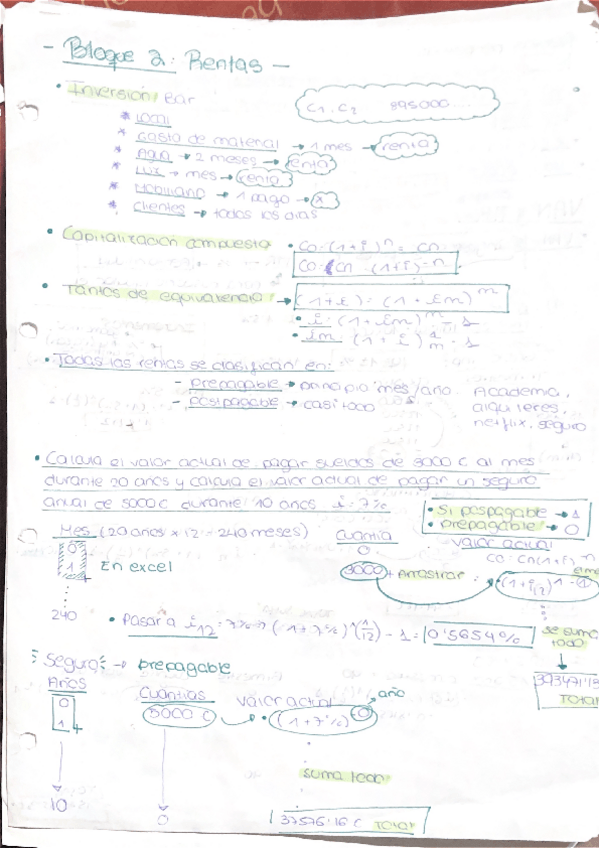 - Bloque 2: Rentas -
• Inversión/ Bar
C1, C2 895000...
* Local
* Gasto de material → 1 mes → renta
* Agua → 2 meses → renta
* Luz → mes → renta
* Mobiliario → 1 pago → x
* Clientes → todos los días
• Capitalización compuesta • Co · (1+i)^n = Cn
Co = Cn · (1+i)^-n
• Tantos de equivalencia: → (1+i) = (1+im)^m
• i = (1+im)^m - 1
• im (1+i)^1/m - 1
• Todas las rentas se clasifican en:
- prepagable → principio mes/año. Academia,
- pospagable → casi todo alquileres,
netflix, seguro
• Calcula el valor actual de pagar sueldos de 3000 € al mes
durante 20 años y calcula el valor actual de pagar un seguro
anual de 5000 € durante 10 años i=7%
• Si pospagable → 1
• prepagable → 0
Mes (20 años x 12 = 240 meses) Cuantía Valor actual
0 0 Co = Cn(1+i)^-n
1 En excel 3000 + Arrastrar
240 • Pasar a i12 = 7% → (1+7%)^(1/12) - 1 = 0'5654% se suma
todo
Seguro → prepagable
TOTAL
Años Cuantías Valor actual año
0 5000 € • (1+7%)^-0
1
suma todo
10 0 37576'16 € TOTAL